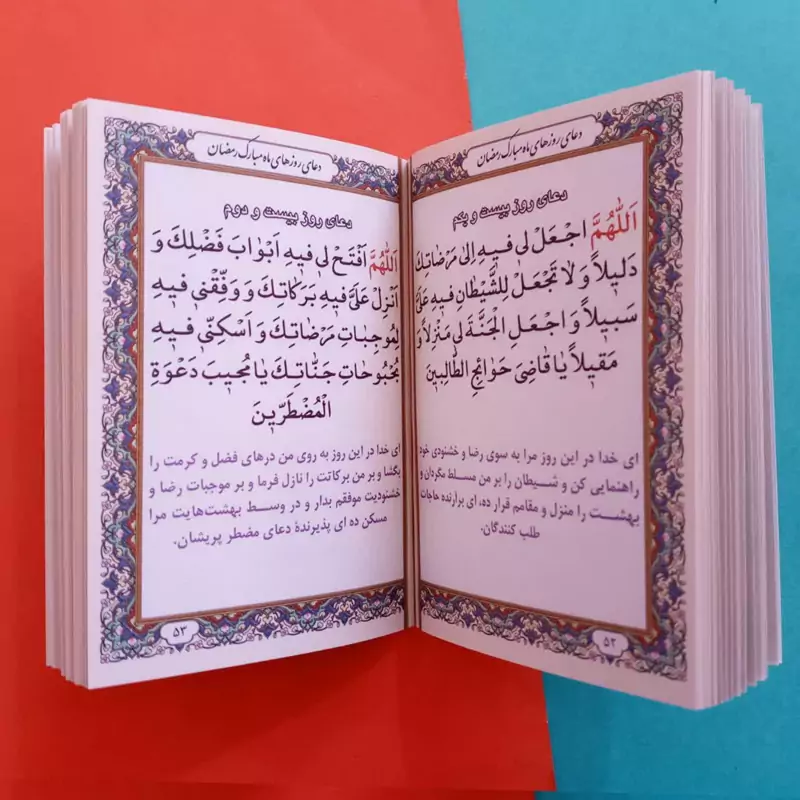 دعای روزهای ماه مبارک رمضان
دعای روز بیست و یکم
اَللّٰهُمَّ اجْعَلْ لی فیهِ اِلیٰ مَرْضاتِكَ
دَلیلاً وَ لا تَجْعَلْ لِلشَّیْطانِ فیهِ عَلَیَّ
سَبیلاً وَ اجْعَلِ الْجَنَّةَ لی مَنْزِلاً وَ
مَقیلاً یا قاضِیَ حَوائِجِ الطّالِبینَ
ای خدا در این روز مرا به سوی رضا و خشنودی خود
راهنمایی کن و شیطان را بر من مسلط مگردان و
بهشت را منزل و مقامم قرار ده، ای برآرنده حاجات
طلب کنندگان.
۵۲
دعای روزهای ماه مبارک رمضان
دعای روز بیست و دوم
اَللّٰهُمَّ افْتَحْ لی فیهِ اَبْوابَ فَضْلِكَ وَ
اَنْزِلْ عَلَیَّ فیهِ بَرَکاتِكَ وَ وَفِّقْنی فیهِ
لِمُوجِباتِ مَرْضاتِكَ وَ اَسْکِنّی فیهِ
بُحْبُوحاتِ جَنّاتِكَ یا مُجیبَ دَعْوَةِ
الْمُضْطَرّینَ
ای خدا در این روز به روی من درهای فضل و کرمت را
بگشا و بر من برکاتت را نازل فرما و بر موجبات رضا و
خشنودیت موفقم بدار و در وسط بهشت‌هایت مرا
مسکن ده ای پذیرندهٔ دعای مضطر پریشان.
۵۳